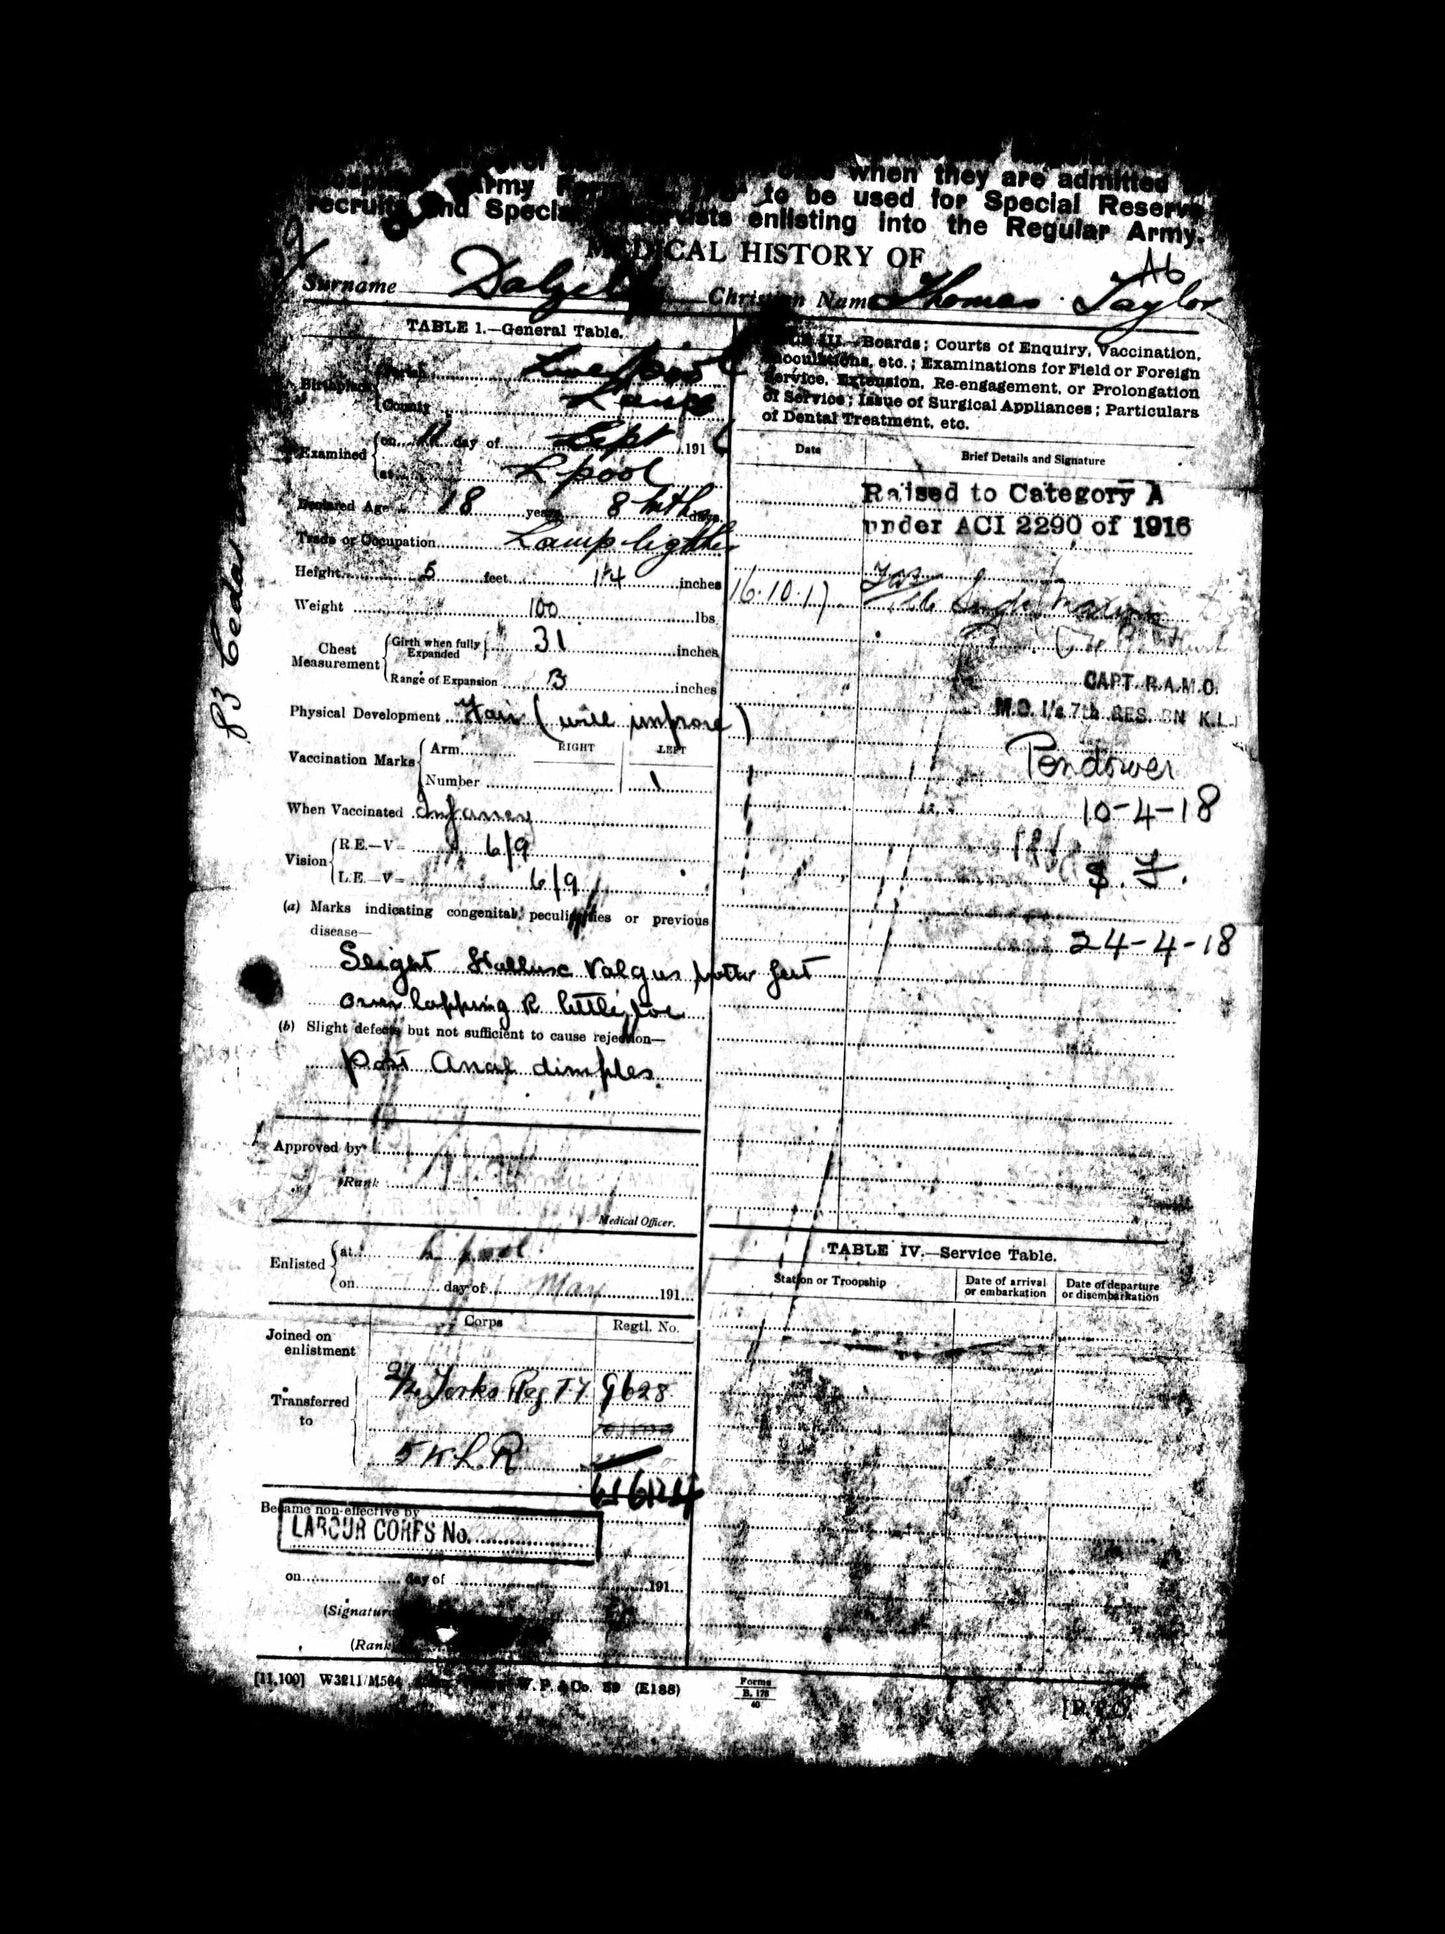 when they are admitted
Army to be used for Special Reserve
recruits and Special enlisting into the Regular Army.
MEDICAL HISTORY OF
A6
Surname Christian Name Thomas Taylor
TABLE I.—General Table.
Birthplace Parish Liverpool
County Lancs
Examined on 11 day of Sept 191
at L'pool
Declared Age 18 years 8 mths days
Trade or Occupation Lamp lighter
Height 5 feet inches
Weight 100 lbs.
Chest Measurement Girth when fully Expanded 31 inches
Range of Expansion 3 inches
Physical Development Fair (will improve)
Vaccination Marks Arm RIGHT LEFT
Number 1
When Vaccinated Infancy
Vision R.E.—V= 6/9
L.E.—V= 6/9
(a) Marks indicating congenital peculiarities or previous
disease—
Slight Hallux Valgus both feet
over lapping R little toe
(b) Slight defects but not sufficient to cause rejection—
Post Anal dimples
Approved by
Rank
Medical Officer.
Enlisted at L'pool
on day of May 191
Corps Regtl. No.
Joined on
enlistment
Transferred
to
Yorks Reg TF 9628
5 K L R
Became non-effective by
LABOUR CORPS No.
on day of 191
(Signature
(Rank
[11,100] W3211/M564 W. P. & Co. 89 (E188)
83 Cedar
III.—Boards; Courts of Enquiry, Vaccination,
Inoculations, etc.; Examinations for Field or Foreign
Service, Extension, Re-engagement, or Prolongation
of Service; Issue of Surgical Appliances; Particulars
of Dental Treatment, etc.
Date Brief Details and Signature
Raised to Category A
under ACI 2290 of 1916
16.10.17
CAPT. R.A.M.C.
M.O. I/c 7th RES. BN K.L.
Pendower
10-4-18
24-4-18
TABLE IV.—Service Table.
Station or Troopship
Date of arrival
or embarkation
Date of departure
or disembarkation
Forms
B. 178
40